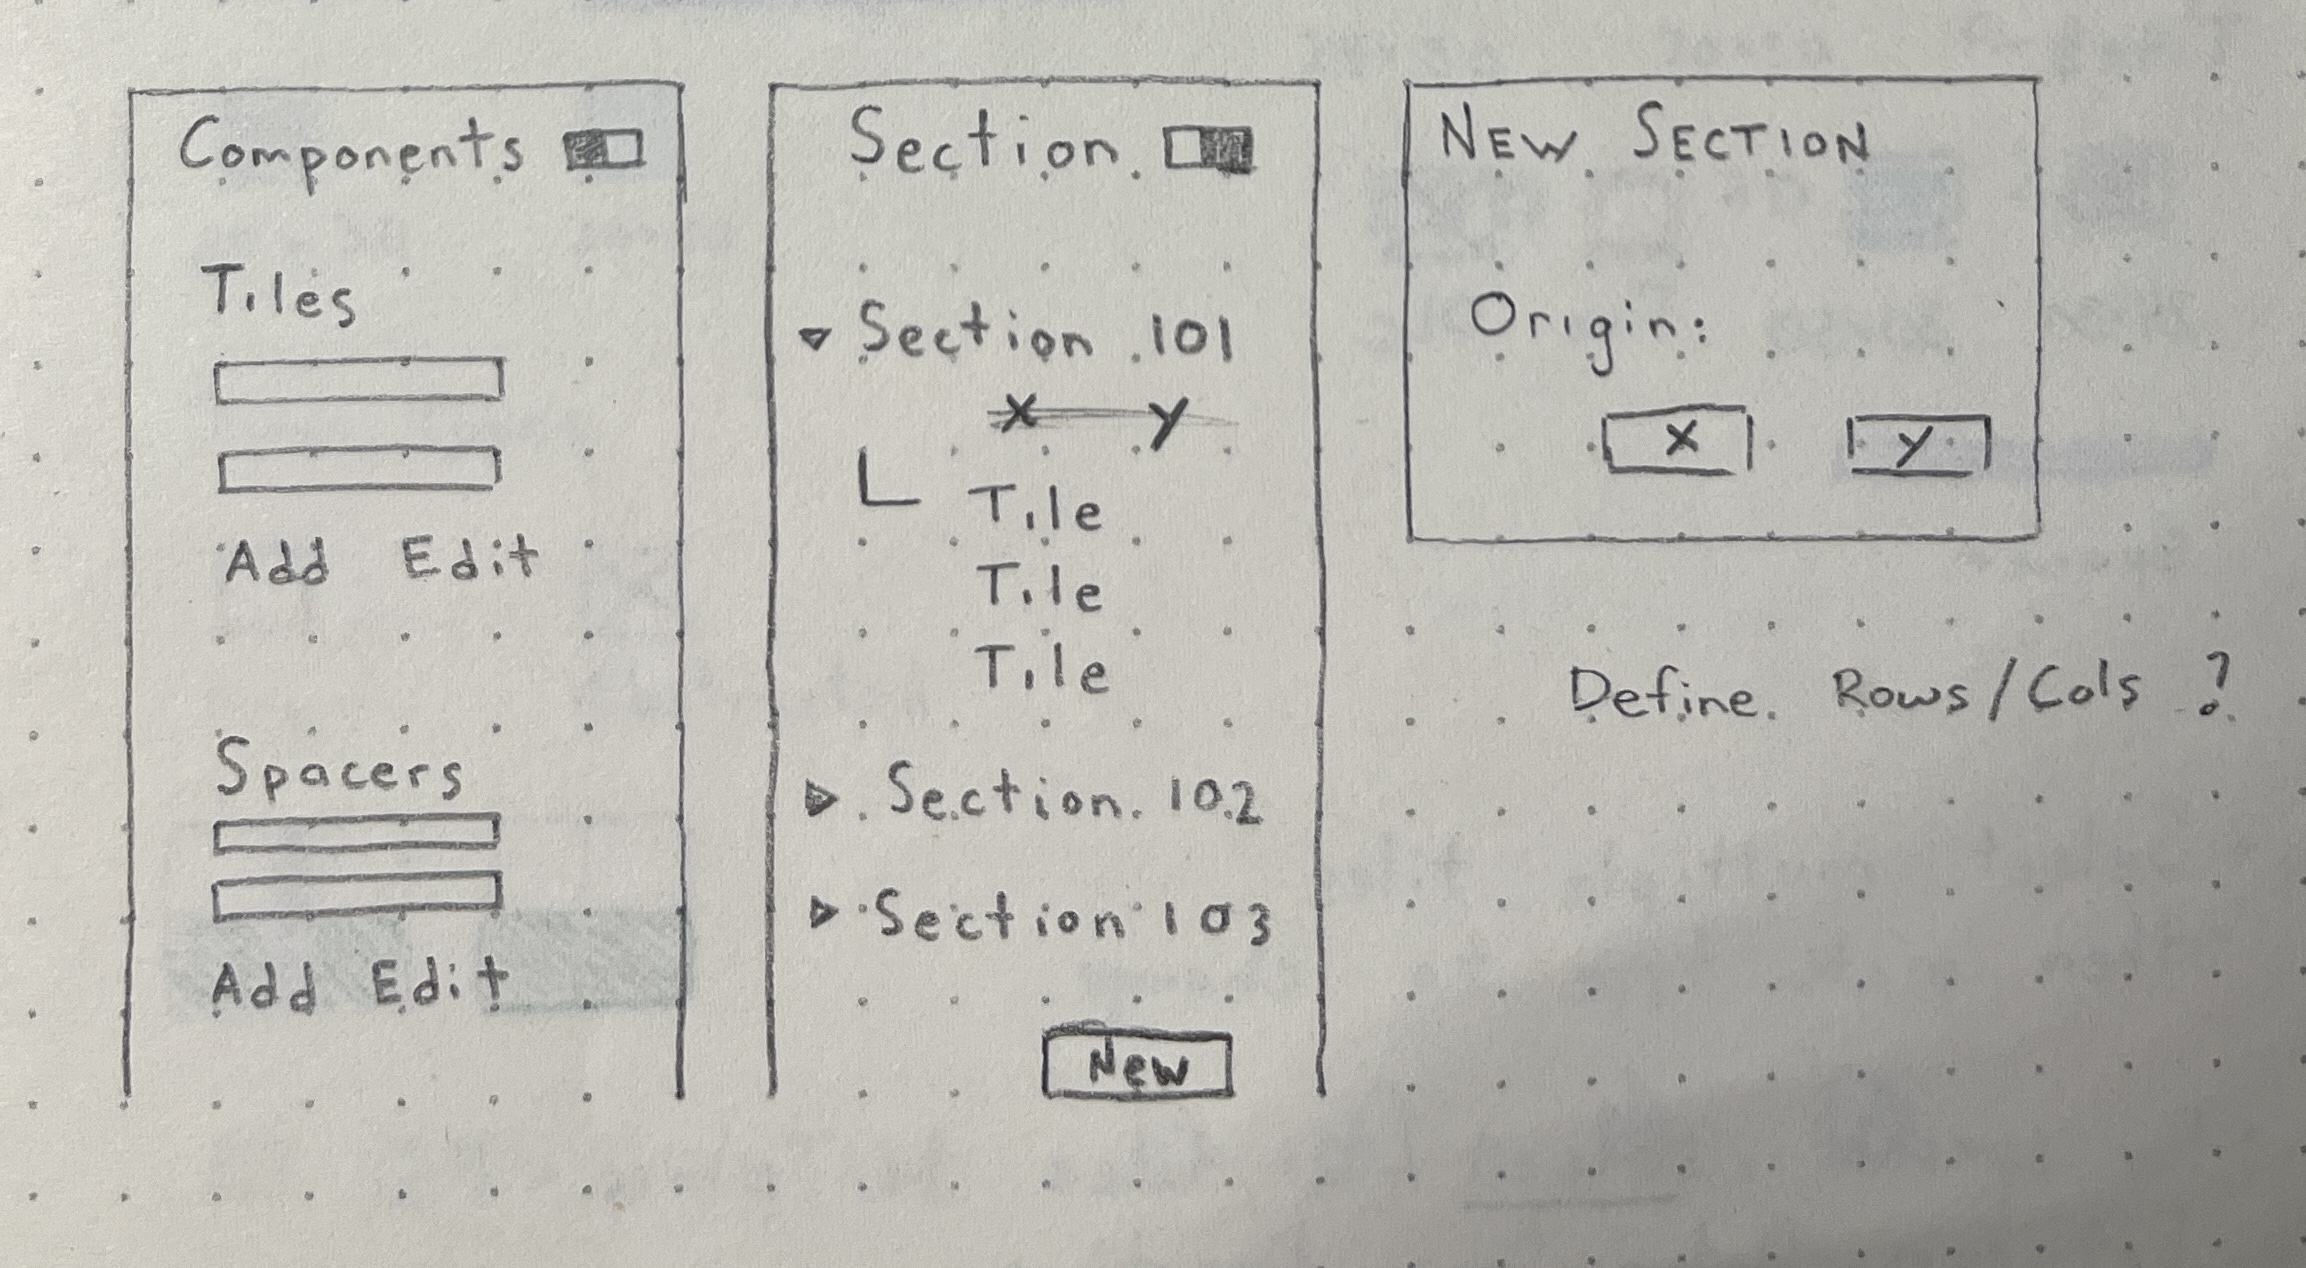 Components
Tiles
Add Edit
Spacers
Add Edit
Section
Section 101
X Y
Tile
Tile
Tile
Section 102
Section 103
New
NEW SECTION
Origin:
X Y
Define Rows/Cols ?